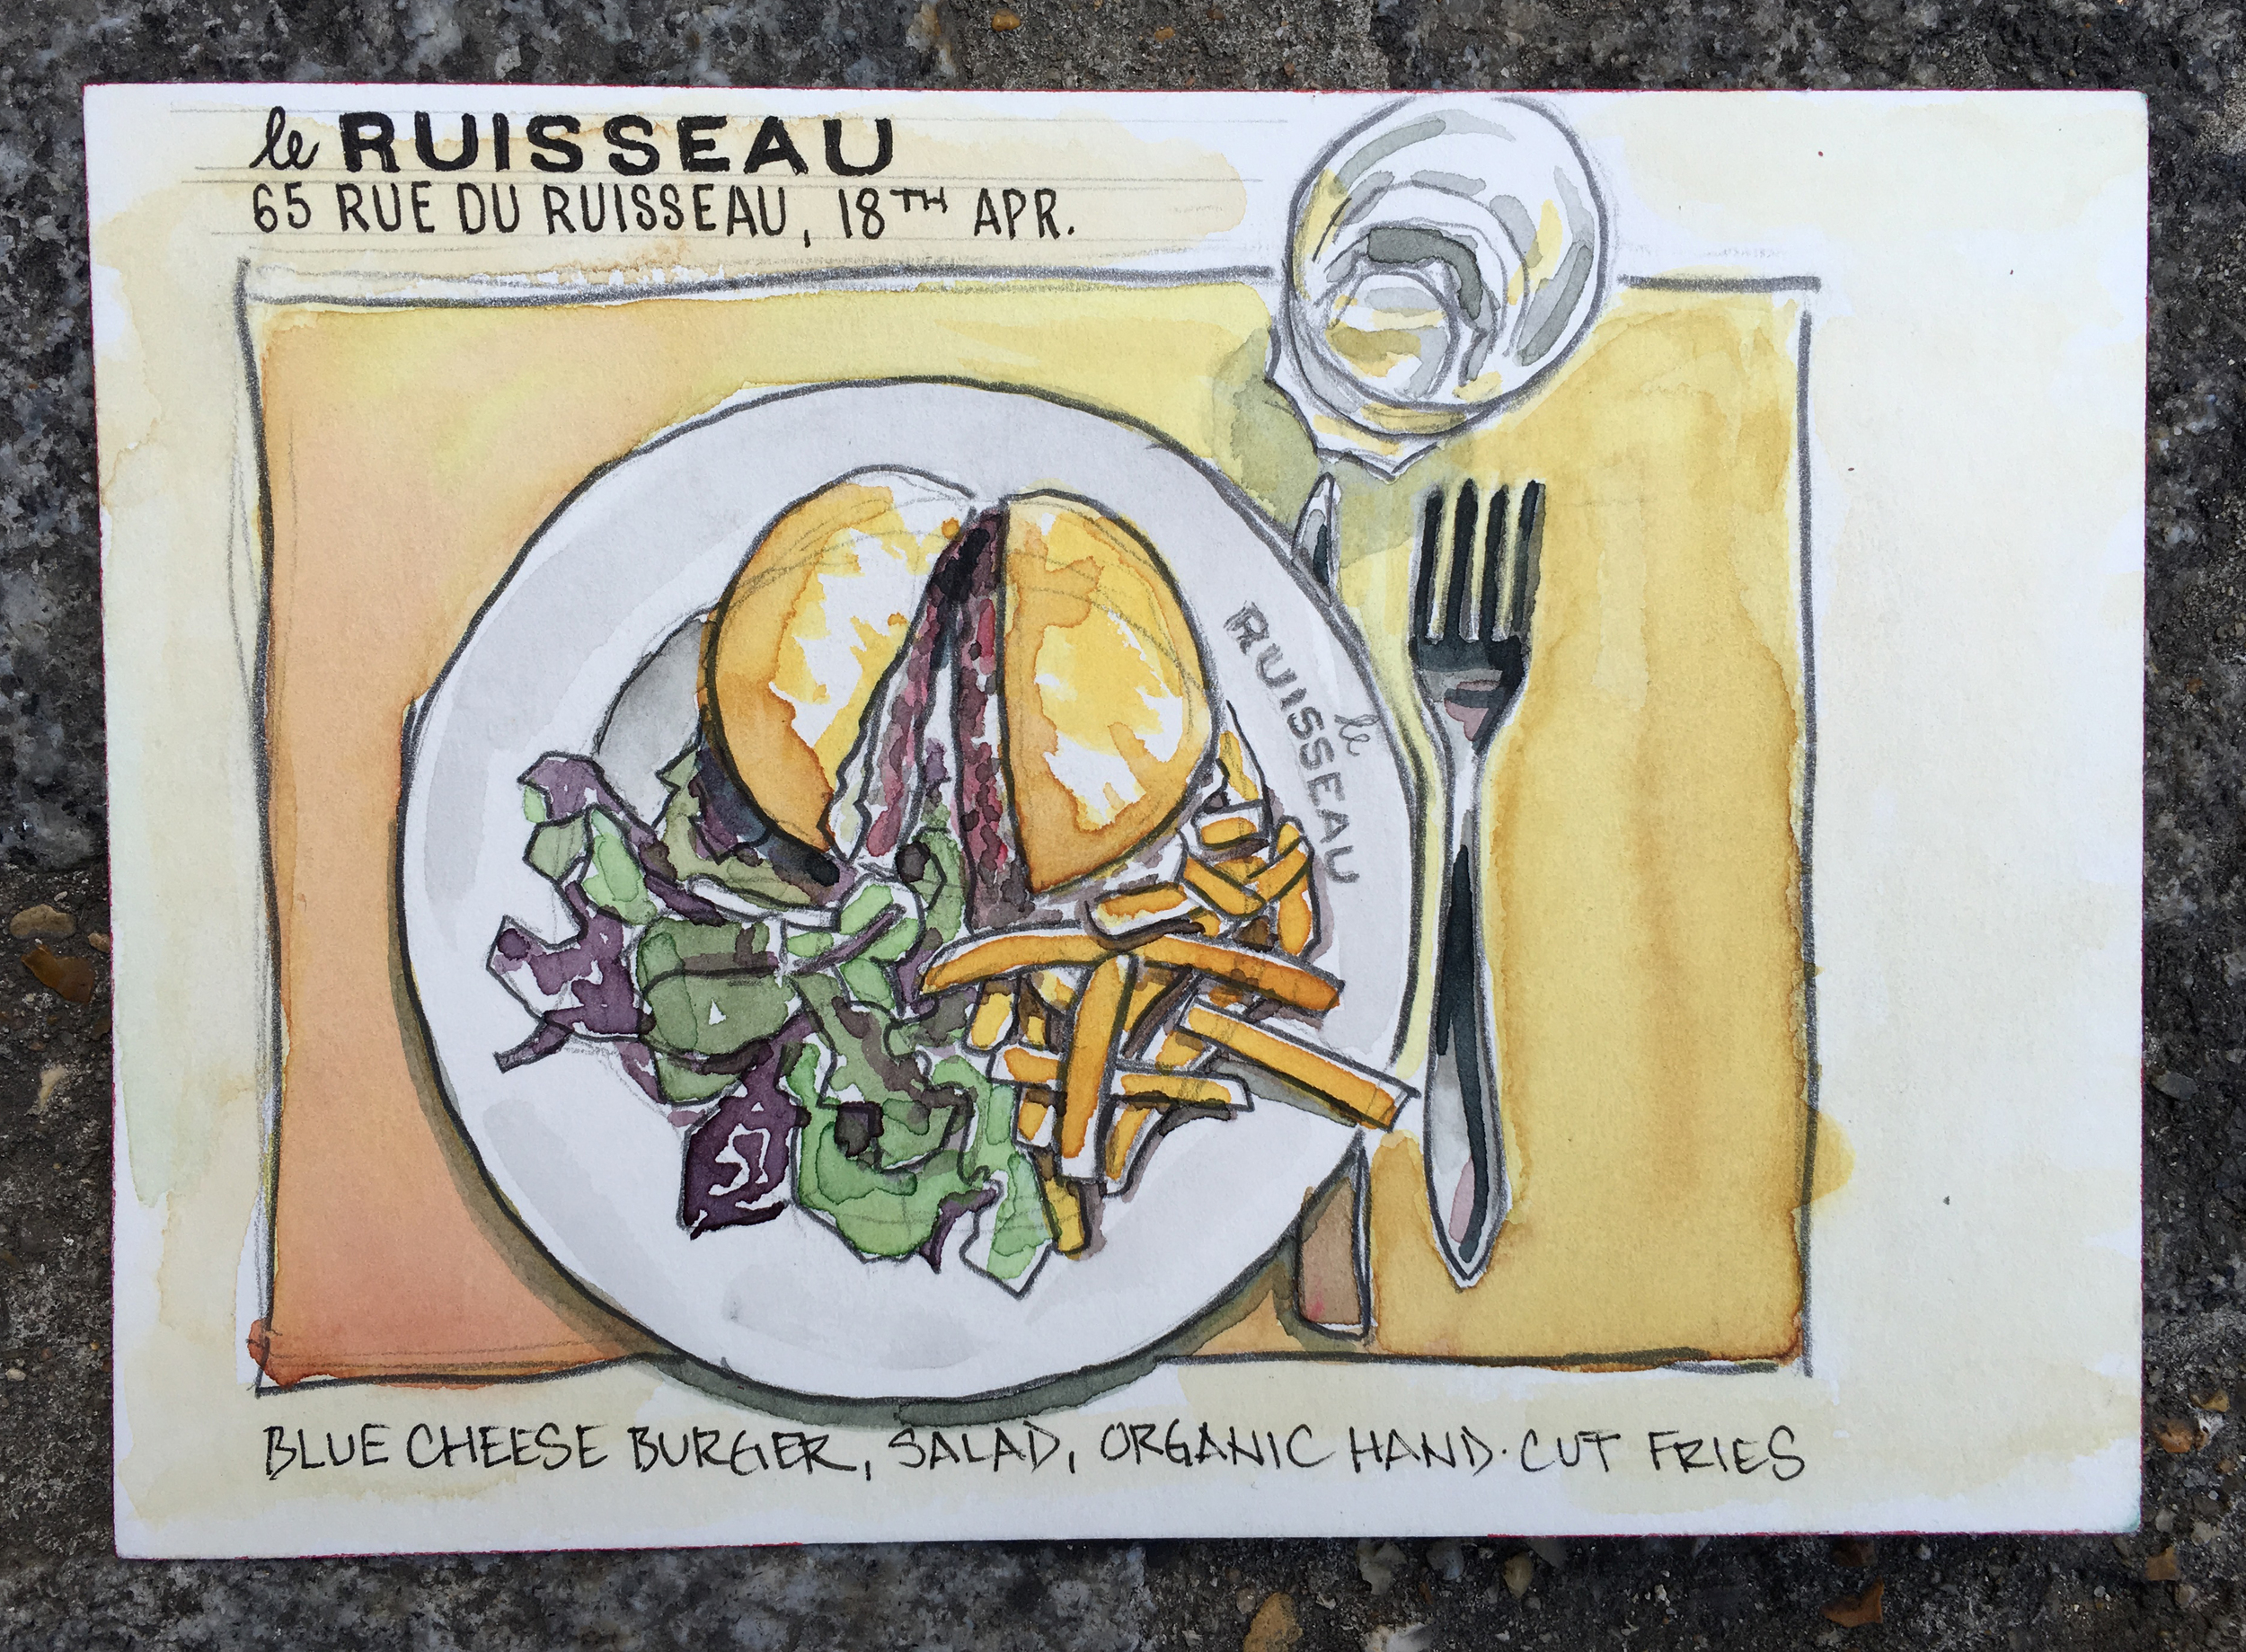 le RUISSEAU
65 RUE DU RUISSEAU, 18TH APR.
le
RUISSEAU
BLUE CHEESE BURGER, SALAD, ORGANIC HAND·CUT FRIES